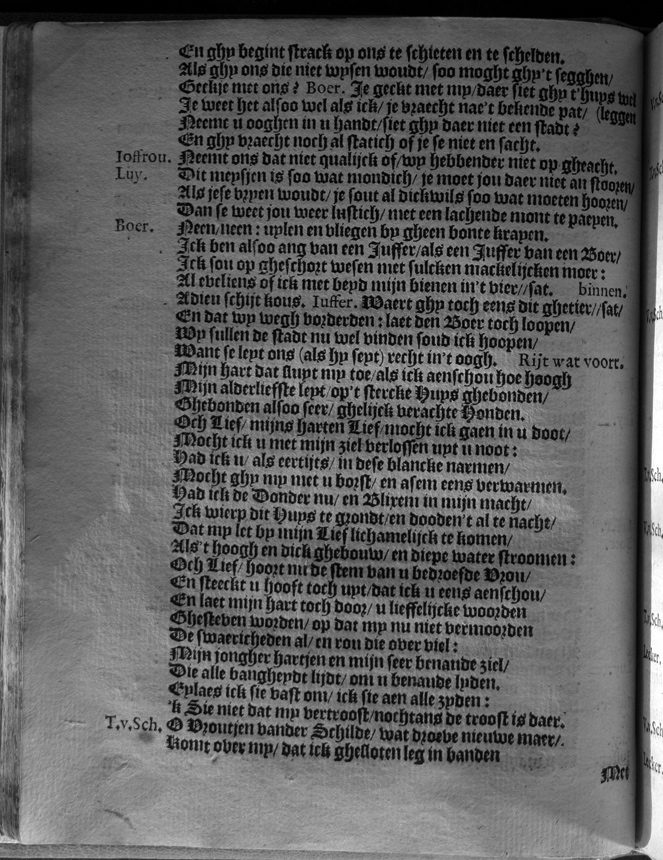 En ghy begint strack op ons te schieten en te schelden.
Als ghy ons die niet wysen woudt/ soo moght ghy't segghen/
Geckje met ons? Boer. Je geckt met my/daer siet ghy t'huys wel
Je weet het alsoo wel als ick/ je vraecht nae't bekende pat/ (leggen
Neemt u ooghen in u handt/siet ghy daer niet een stadt?
En ghy vraecht noch al statich of je se niet en sacht.
Ioffrou. Neemt ons dat niet qualijck of/wy hebbender niet op gheacht.
Luy. Dit meysjen is soo wat mondich/ je moet jou daer niet an stooren/
Als jese vryen woudt/ je sout al dickwils soo wat moeten hooren/
Dan se weet jou weer lustich/ met een lachende mont te paeyen.
Boer. Neen/neen: uylen en vliegen by gheen bonte krayen.
Ick ben alsoo ang van een Juffer/als een Juffer van een Boer/
Ick sou op gheschort wesen met sulcken mackelijcken moer:
Al eveliens of ick met beyd mijn bienen in't vier//sat. binnen.
Adieu schijt kous. Iuffer. Waert ghy toch eens dit ghetier//sat/
En dat wy wegh vorderden: laet den Boer toch loopen/
Wy sullen de stadt nu wel vinden soud ick hoopen/
Want se leyt ons (als hy seyt) recht in't oogh. Rijt wat voort.
Mijn hart dat sluyt my toe/als ick aenschou hoe hoogh
Mijn alderliefste leyt/op't stercke Huys ghebonden/
Ghebonden alsoo seer/ ghelijck verachte Honden.
Och Lief/ mijns harten Lief/mocht ick gaen in u doot/
Mocht ick u met mijn ziel verlossen uyt u noot:
Had ick u/ als eertijts/ in dese blancke narmen/
Mocht ghy my met u borst/ en asem eens verwarmen.
Had ick de Donder nu/ en Blixem in mijn macht/
Ick wierp dit Huys te grondt/en dooden't al te nacht/
Dat my let by mijn Lief lichamelijck te komen/
Als't hoogh en dick ghebouw/ en diepe water stroomen:
Och Lief/ hoort nu de stem van u bedroefde Vrou/
En steeckt u hooft toch uyt/dat ick u eens aenschou/
En laet mijn hart toch door/ u lieffelijcke woorden
Ghesteven worden/ op dat my nu niet vermoorden
De swaericheden al/ en rou die over viel:
Mijn jongher hartjen en mijn seer benaude ziel/
Die alle bangheydt lijdt/ om u benaude lyden.
Eylaes ick sie vast om/ ick sie aen alle zyden:
'k Sie niet dat my vertroost/nochtans de troost is daer.
T.v.Sch. O Vroutjen vander Schilde/ wat droeve nieuwe maer/.
Komt over my/ dat ick ghesloten leg in banden
Met